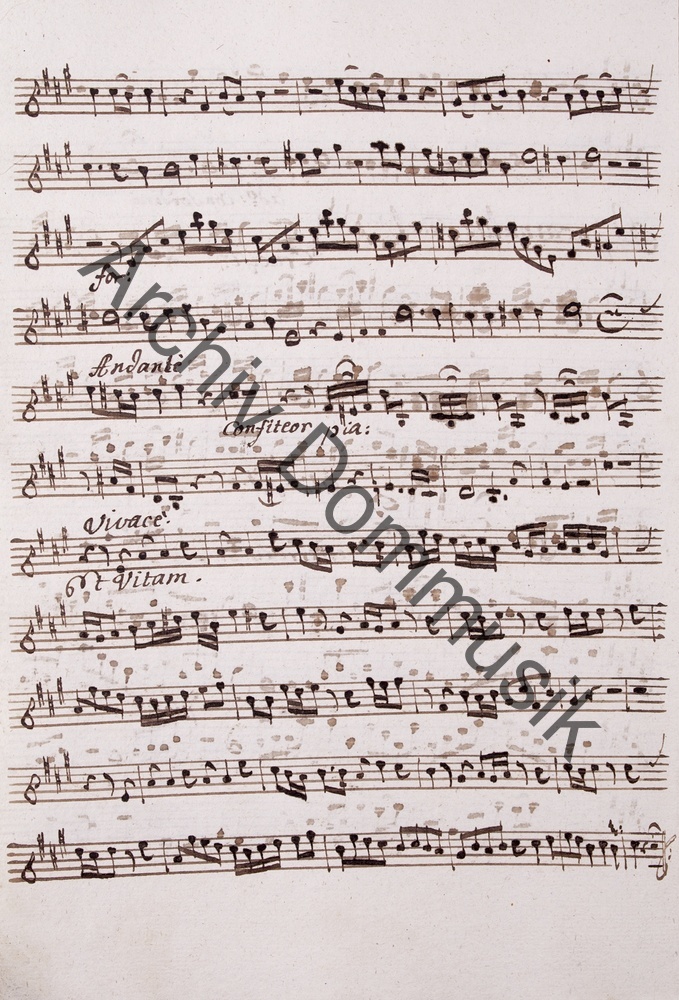 for:
Andante
Confiteor pia:
Vivace.
Et Vitam.
Archiv Dommusik